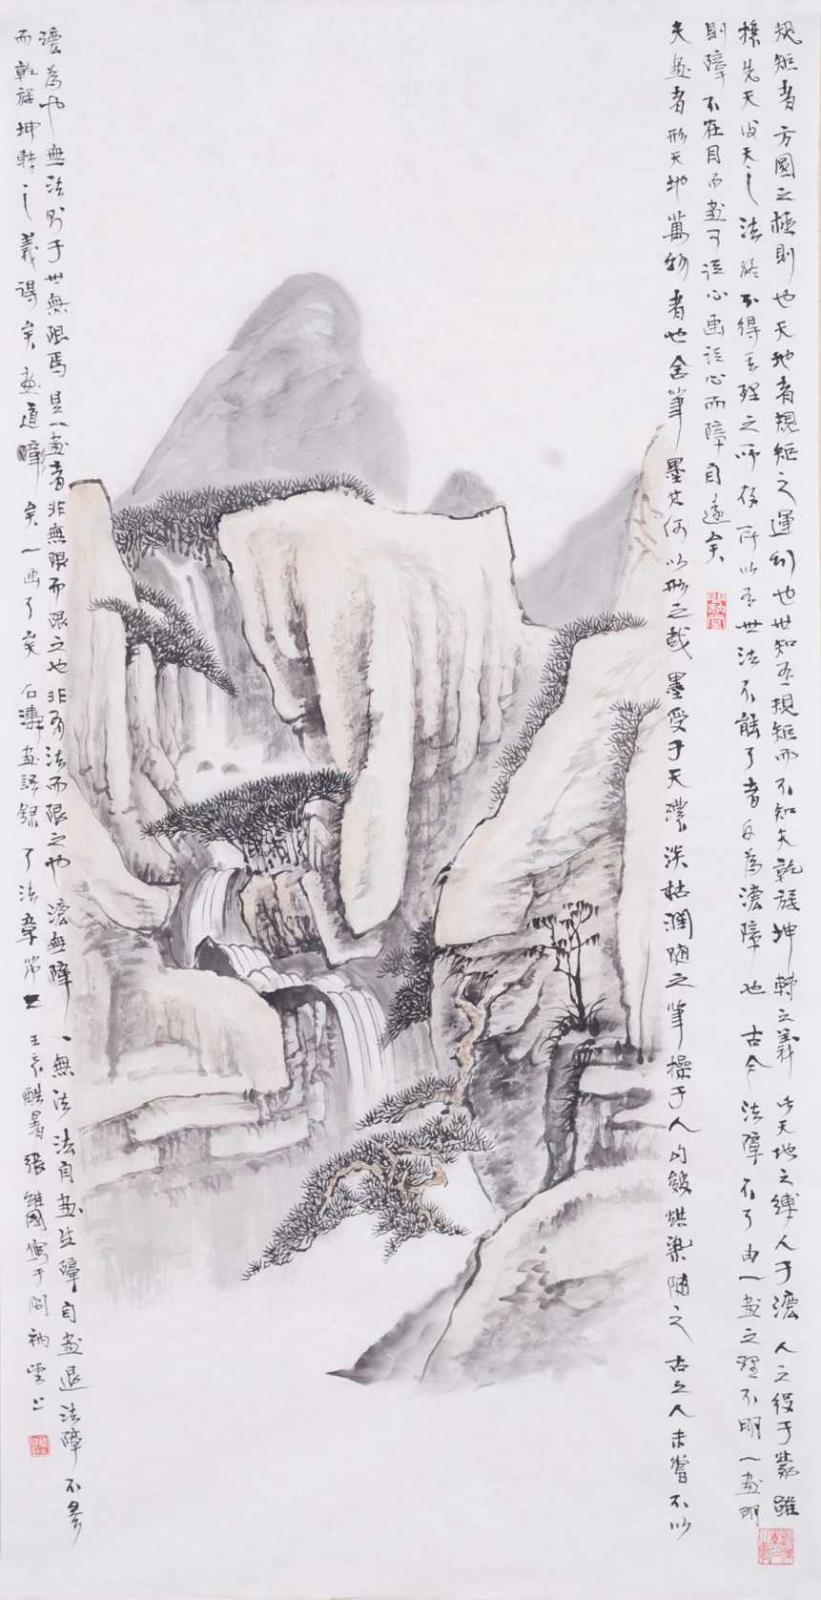 規矩者方圓之極則也天地者規矩之運行也世知有規矩而不知夫乾旋坤轉之義此天地之縛人于法人之役于蒙雖
攘先天後天之法終不得其理之所存所以有世法不能了者反為法障也古今法障不了由一畫之理不明一畫明
則障不在目而畫可從心画從心而障自遠矣
夫畫者形天地萬物者也舍筆墨其何以形之哉墨受于天濃淡枯潤隨之筆操于人勾皴烘染隨之古之人未嘗不以
法為也無法則于世無限焉是一畫者非無限而限之也非有法而限之也法無障、無法法自畫生障自畫退法障不參
而乾旋坤轉之義得矣畫道障矣一画了矣 石濤畫語錄 了法章第二 壬辰酷暑張國寫于問衲堂上